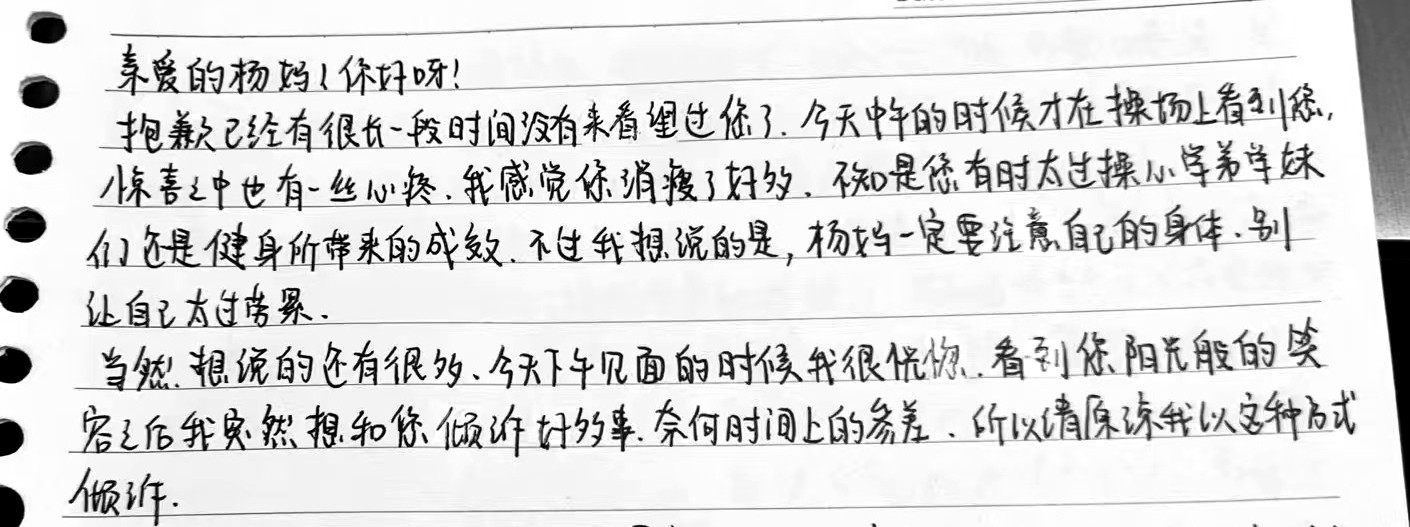 亲爱的杨妈！你好呀！
抱歉已经有很长一段时间没有来看望过您了.今天中午的时候才在操场上看到您,
惊喜之中也有一丝心疼.我感觉您消瘦了好多.不知是您有时太过操心学弟学妹
们还是健身所带来的成效.不过我想说的是,杨妈一定要注意自己的身体.别
让自己太过劳累.
当然.想说的还有很多、今天下午见面的时候我很恍惚.看到您阳光般的笑
容之后我突然想和您倾诉好多事.奈何时间上的参差、所以请原谅我以这种方式
倾诉.